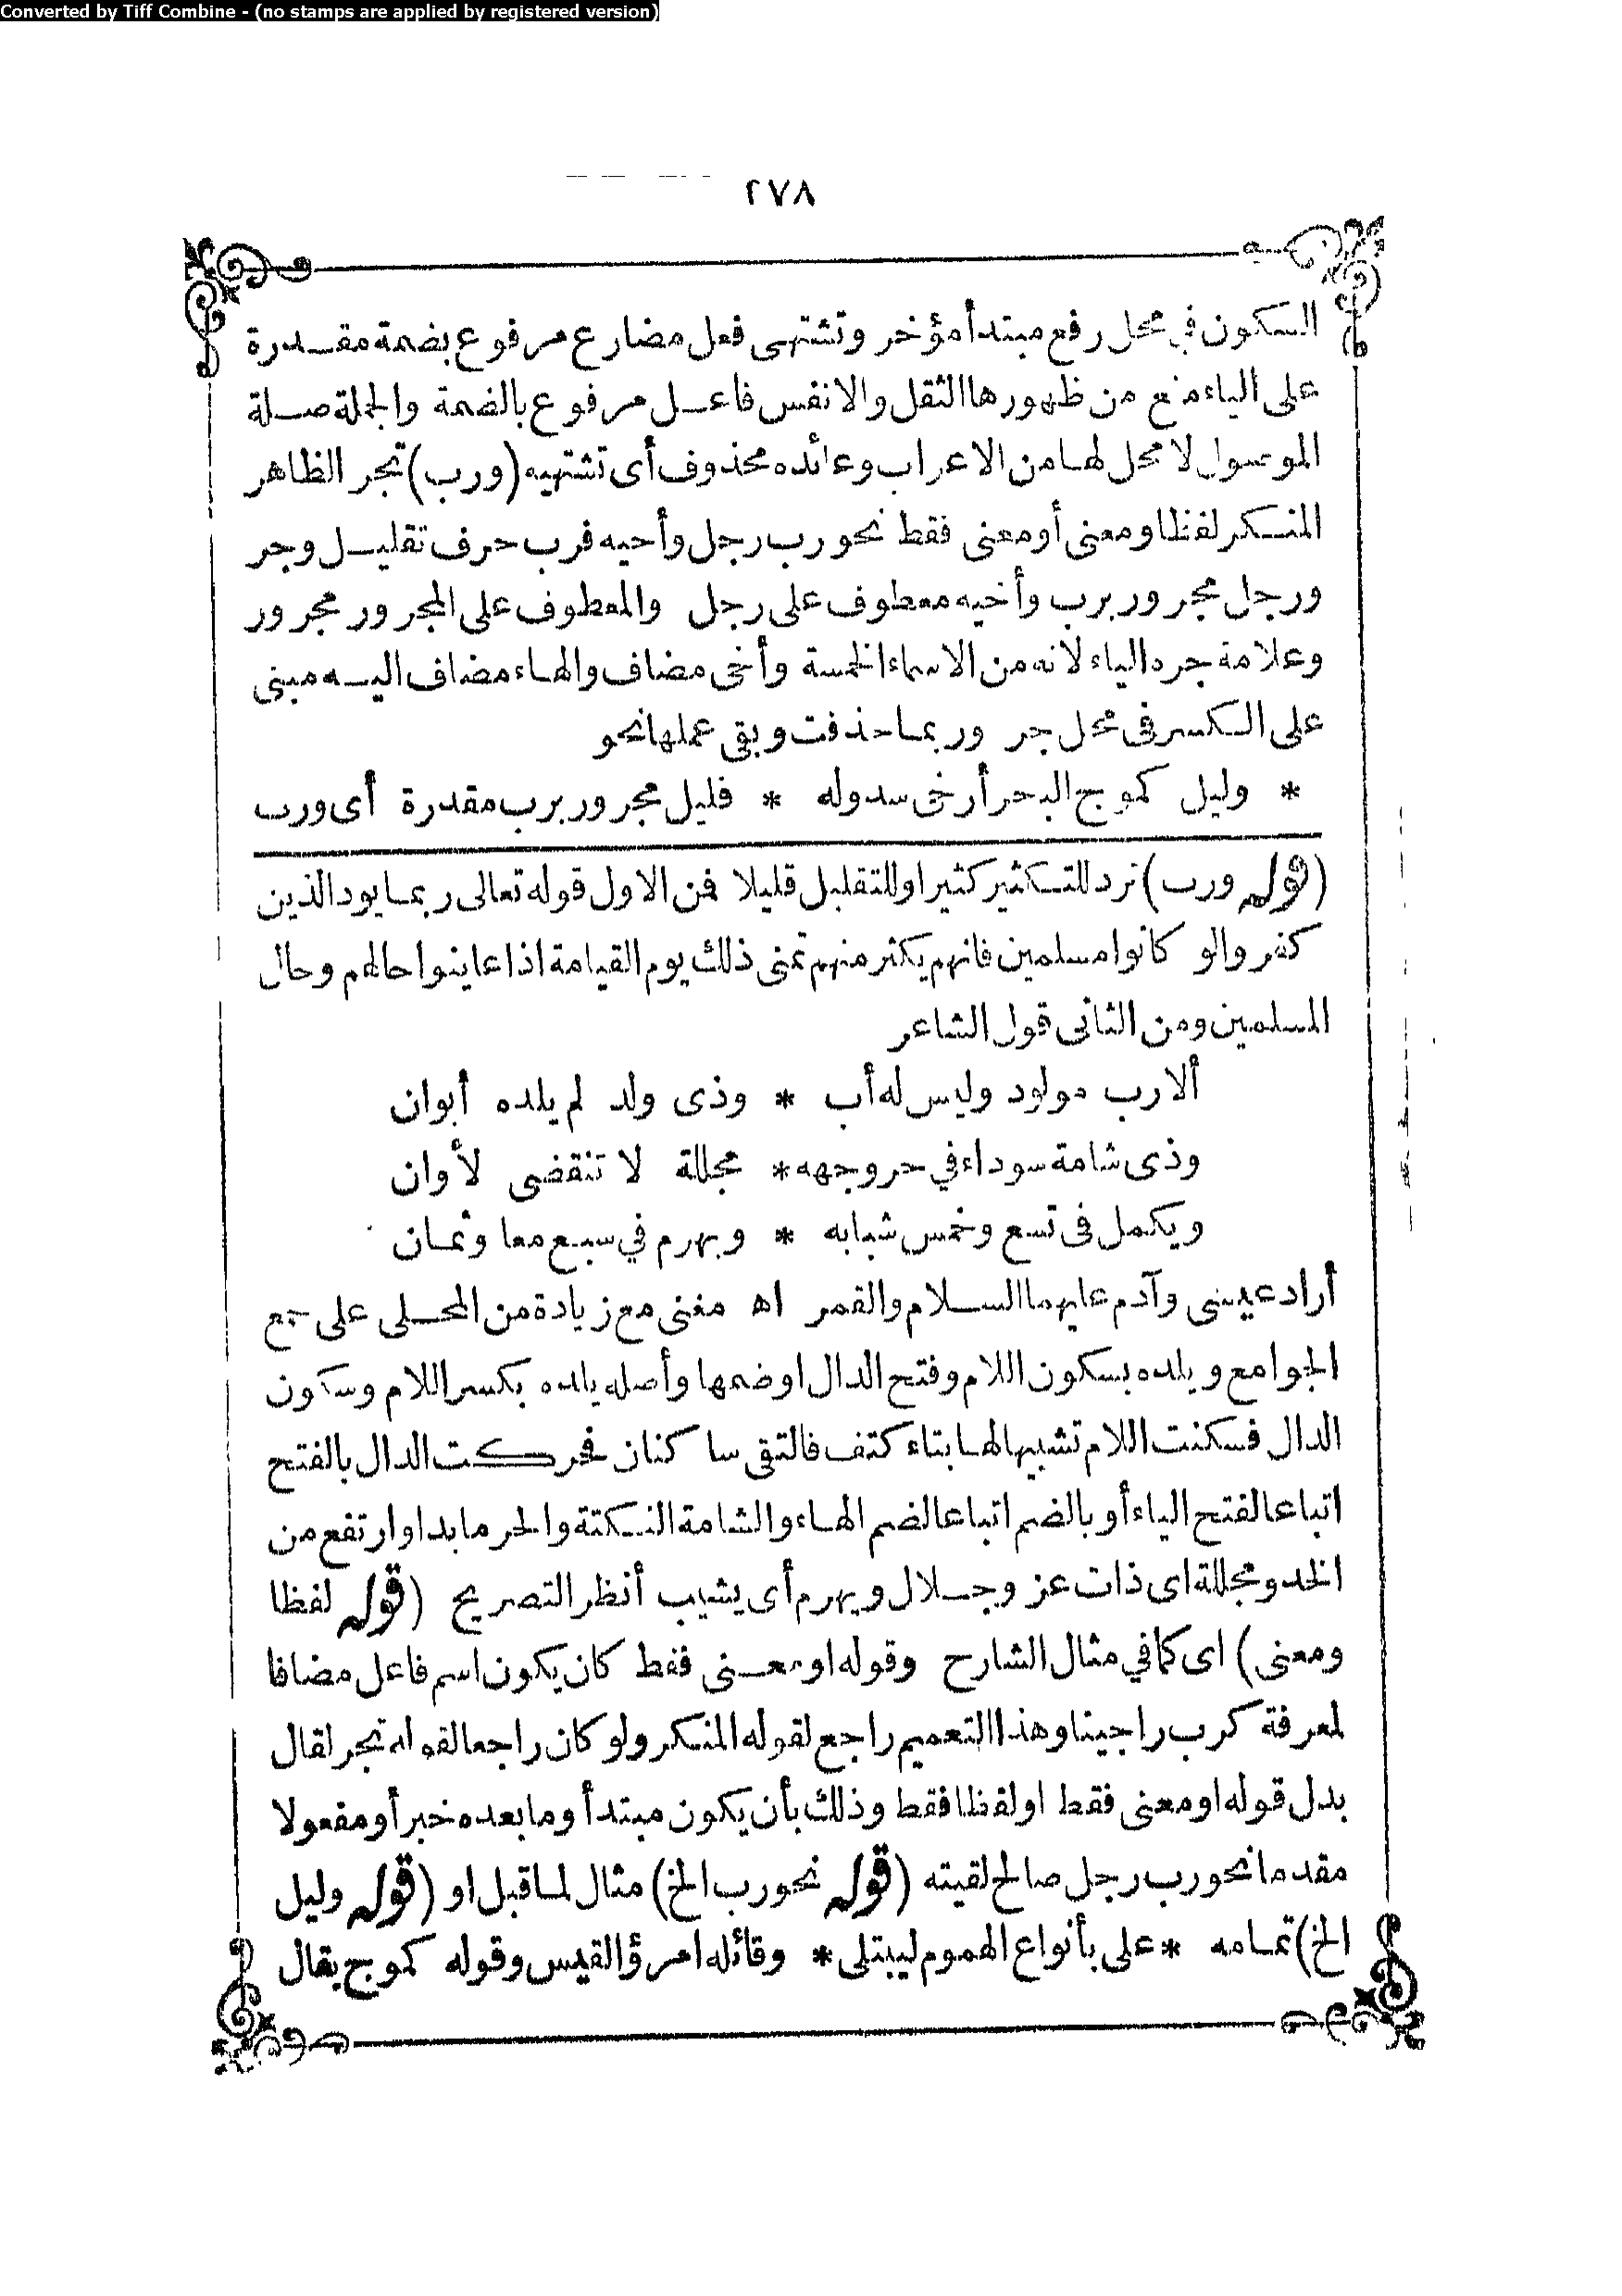 Converted by Tiff Combine - (no stamps are applied by registered version)
٢٧٨
السكون في محل رفع مبتدأ مؤخر وتشتهى فعل مضارع مرفوع بضمة مقدرة
على الياء منع من ظهورها الثقل والانفس فاعل مرفوع بالضمة والجملة صلة
الموصول لا محل لها من الاعراب وعائده محذوف أى تشتهيه (ورب) تجر الظاهر
المنكر لفظا ومعنى أو معنى فقط نحو رب رجل وأخيه فرب حرف تقليل وجر
ورجل مجرور برب وأخيه معطوف على رجل والمعطوف على المجرور مجرور
وعلامة جره الياء لانه من الاسماء الخمسة وأخى مضاف والهاء مضاف اليه مبنى
على الكسر فى محل جر وربما حذفت وبقى عملها نحو
* وليل كموج البحر أرخى سدوله * فليل مجرور برب مقدرة أى ورب
(قوله ورب) ترد للتكثير كثيرا وللتقليل قليلا فمن الاول قوله تعالى ربما يود الذين
كفروا لو كانوا مسلمين فانهم يكثر منهم تمنى ذلك يوم القيامة اذا عاينوا حالهم وحال
المسلمين ومن الثانى قول الشاعر
ألا رب مولود وليس له أب * وذى ولد لم يلده أبوان
وذى شامة سوداء في حر وجهه * مجللة لا تنقضى لأوان
ويكمل فى تسع وخمس شبابه * ويهرم في سبع معا وثمان
أراد عيسى وآدم عليهما السلام والقمر اه مغنى مع زيادة من المحلى على جمع
الجوامع ويلده بسكون اللام وفتح الدال او ضمها وأصله يلده بكسر اللام وسكون
الدال فسكنت اللام تشبيها لها بتاء كتف فالتقى ساكنان فحركت الدال بالفتح
اتباعا لفتح الياء أو بالضم اتباعا لضم الهاء والشامة النكتة والحر ما بدا وارتفع من
الخد ومجللة اى ذات عز وجلال ويهرم أى يشيب أنظر التصريح (قوله لفظا
ومعنى) اى كما في مثال الشارح وقوله او معنى فقط كان يكون اسم فاعل مضافا
لمعرفة كرب راجينا وهذا التعميم راجع لقوله المنكر ولو كان راجعا لقوله تجر لقال
بدل قوله او معنى فقط او لفظا فقط وذلك بأن يكون مبتدأ وما بعده خبر أو مفعولا
مقدما نحو رب رجل صالح لقيته (قوله نحو رب الخ) مثال لما قبل او (قوله وليل
الخ) تمامه * على بأنواع الهموم ليبتلى * وقائله امرؤ القيس وقوله كموج يقال